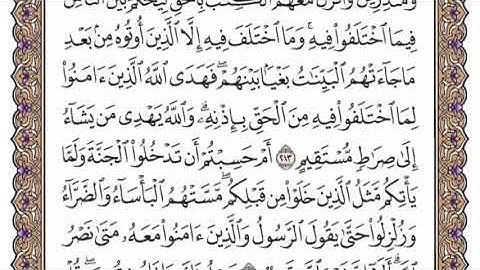 ومنذرين وأنزل معهم الكتب بالحق ليحكم بين الناس
فِيمَا ٱخْتَلَفُوا۟ فِيهِ ۚ وَمَا ٱخْتَلَفَ فِيهِ إِلَّا ٱلَّذِينَ أُوتُوهُ مِنۢ بَعْدِ
مَا جَآءَتْهُمُ ٱلْبَيِّنَٰتُ بَغْيًۢا بَيْنَهُمْ ۖ فَهَدَى ٱللَّهُ ٱلَّذِينَ ءَامَنُوا۟
لِمَا ٱخْتَلَفُوا۟ فِيهِ مِنَ ٱلْحَقِّ بِإِذْنِهِۦ ۗ وَٱللَّهُ يَهْدِى مَن يَشَآءُ
إِلَىٰ صِرَٰطٍ مُّسْتَقِيمٍ ٢١٣ أَمْ حَسِبْتُمْ أَن تَدْخُلُوا۟ ٱلْجَنَّةَ وَلَمَّا
يَأْتِكُم مَّثَلُ ٱلَّذِينَ خَلَوْا۟ مِن قَبْلِكُم ۖ مَّسَّتْهُمُ ٱلْبَأْسَآءُ وَٱلضَّرَّآءُ
وَزُلْزِلُوا۟ حَتَّىٰ يَقُولَ ٱلرَّسُولُ وَٱلَّذِينَ ءَامَنُوا۟ مَعَهُۥ مَتَىٰ نَصْرُ